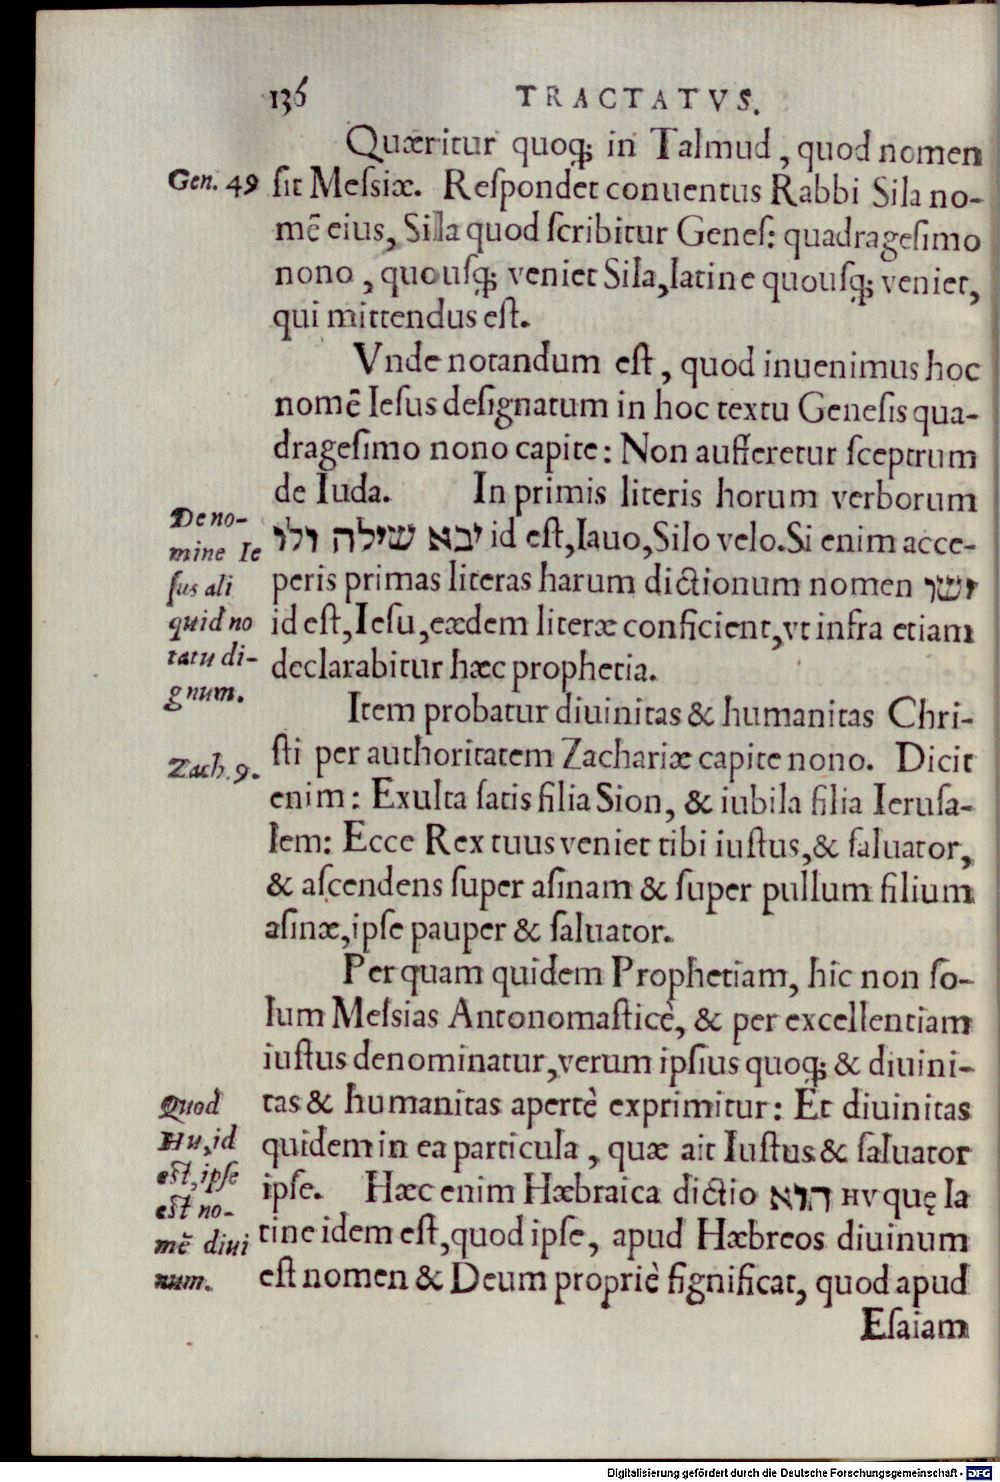 136 TRACTATVS.
Quæritur quoq; in Talmud, quod nomen
Gen. 49
sit Messiæ. Respondet conuentus Rabbi Sila no-
mē eius, Silla quod scribitur Genes: quadragesimo
nono, quousq; veniet Sila, latine quousq; veniet,
qui mittendus est.
Vnde notandum est, quod inuenimus hoc
nomē Iesus designatum in hoc textu Genesis qua-
dragesimo nono capite: Non aufferetur sceptrum
de Iuda. In primis literis horum verborum
יבא שילה ולו id est, Iauo, Silo velo. Si enim acce-
peris primas literas harum dictionum nomen ישו
id est, Iesu, eædem literæ conficient, vt infra etiam
declarabitur hæc prophetia.
De no-
mine Ie
sus ali
quid no
tatu di-
gnum.
Item probatur diuinitas & humanitas Chri-
sti per authoritatem Zachariæ capite nono. Dicit
Zach. 9.
enim: Exulta satis filia Sion, & iubila filia Ierusa-
lem: Ecce Rex tuus veniet tibi iustus, & saluator,
& ascendens super asinam & super pullum filium
asinæ, ipse pauper & saluator.
Per quam quidem Prophetiam, hic non so-
lum Messias Antonomasticè, & per excellentiam
iustus denominatur, verum ipsius quoq; & diuini-
tas & humanitas apertè exprimitur: Et diuinitas
quidem in ea particula, quæ ait Iustus & saluator
ipse. Hæc enim Hæbraica dictio הוא HV quę la
tine idem est, quod ipse, apud Hæbreos diuinum
est nomen & Deum propriè significat, quod apud
Quod
Hu, id
est, ipse
est no-
mē diui
num.
Esaiam
Digitalisierung gefördert durch die Deutsche Forschungsgemeinschaft - DFG